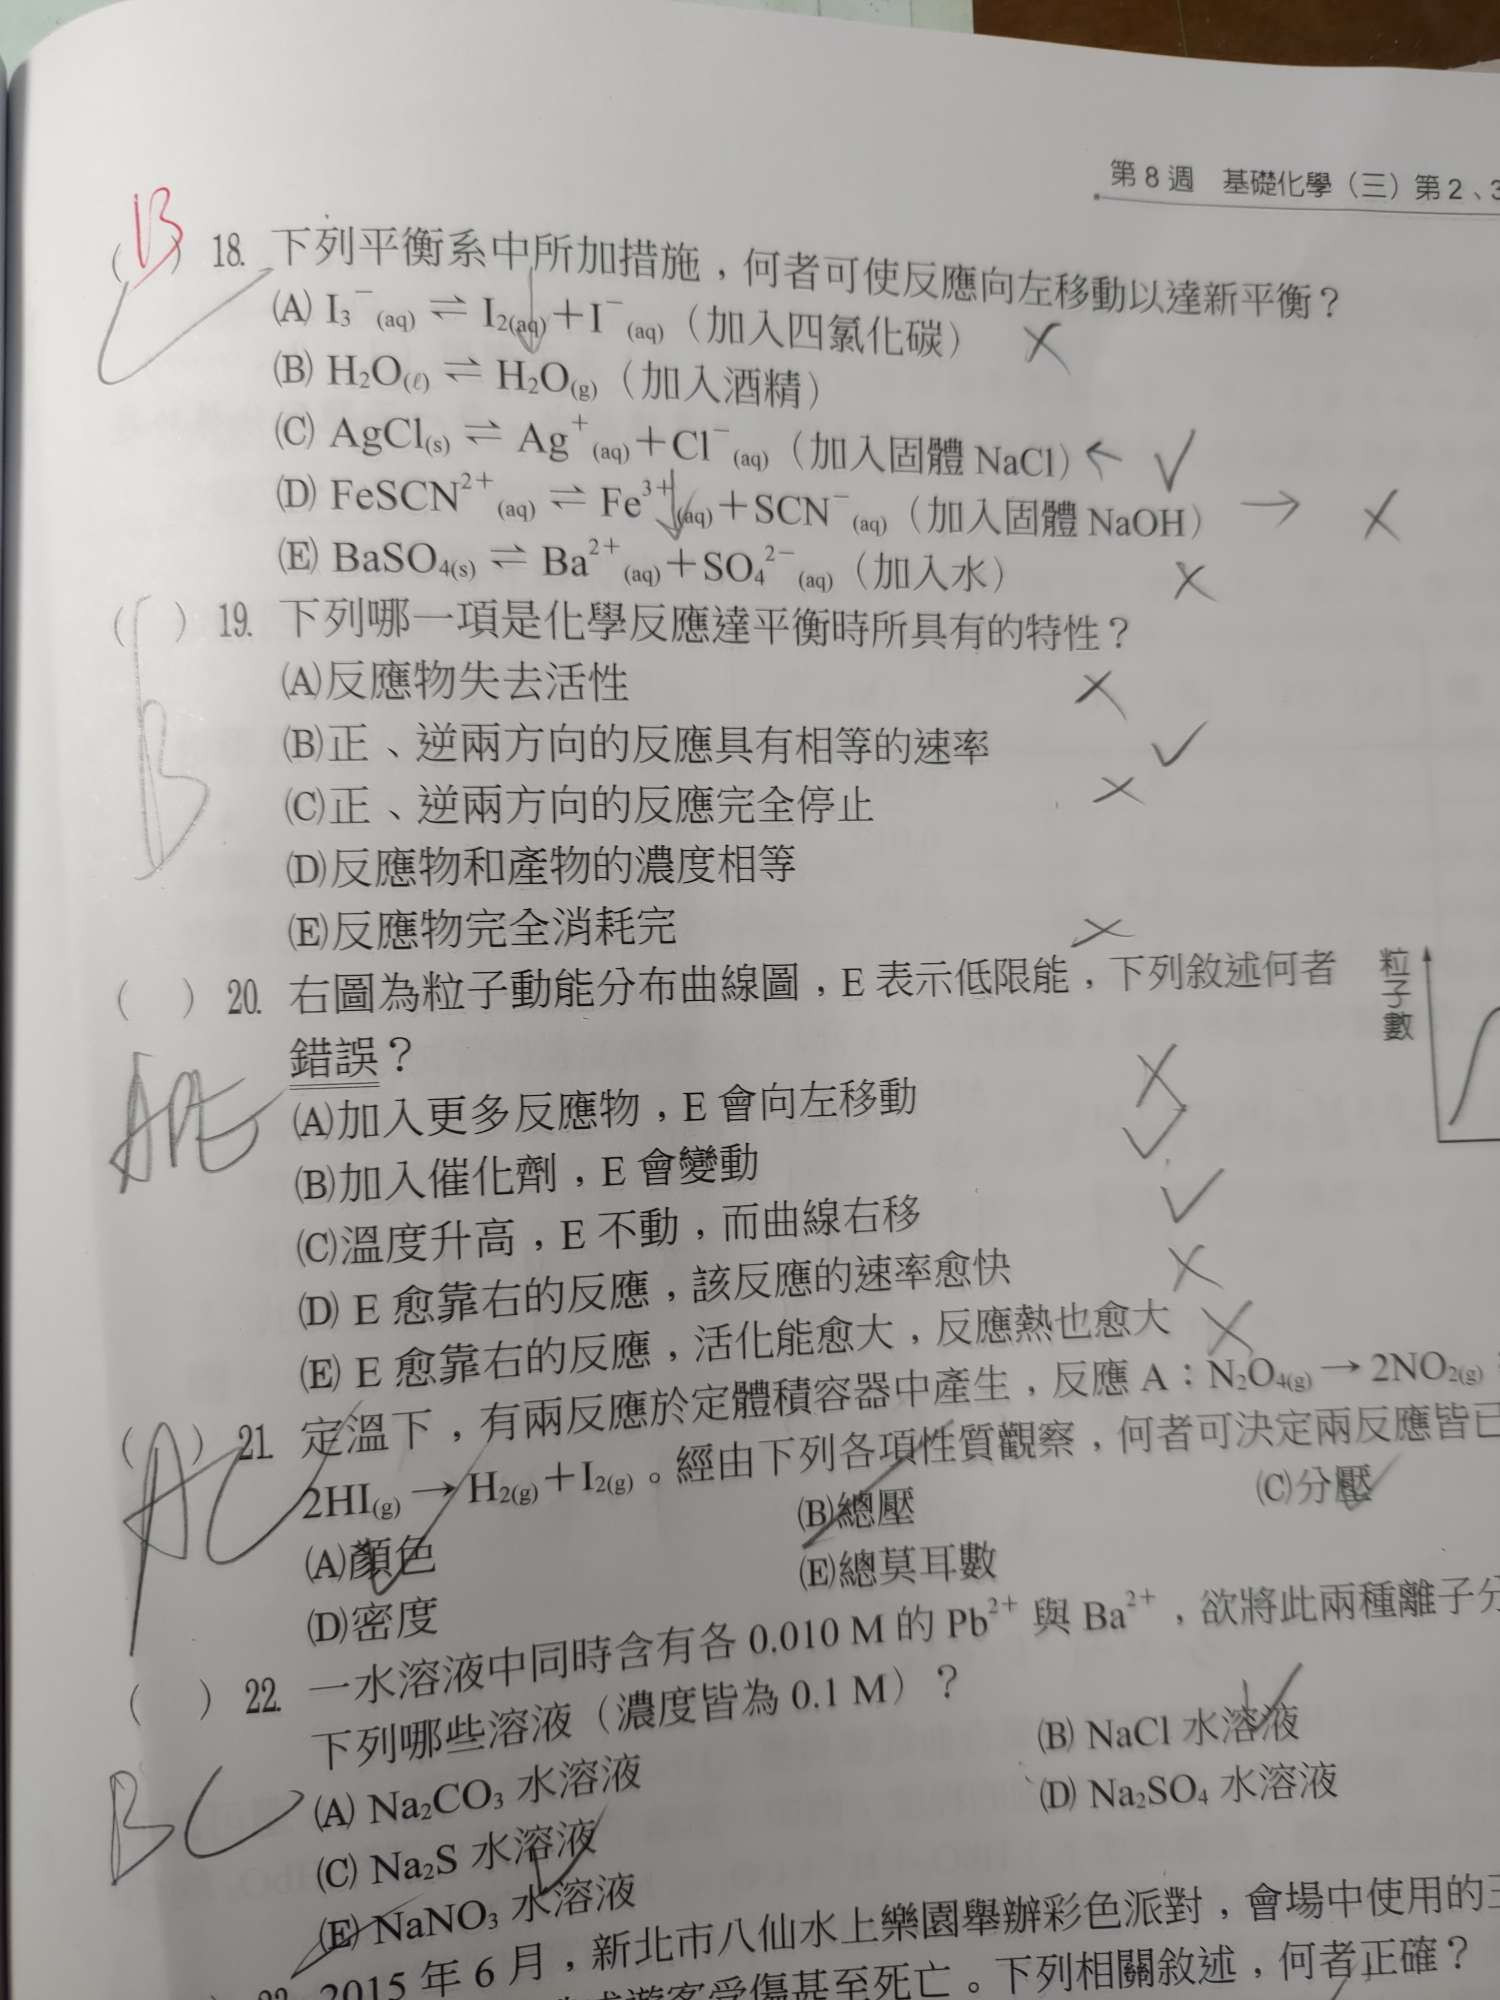 第8週 基礎化學（三）第2、3
(B) 18. 下列平衡系中所加措施，何者可使反應向左移動以達新平衡？
(A) I₃⁻(aq) ⇌ I₂(aq)＋I⁻(aq)（加入四氯化碳） ×
(B) H₂O(ℓ) ⇌ H₂O(g)（加入酒精）
(C) AgCl(s) ⇌ Ag⁺(aq)＋Cl⁻(aq)（加入固體 NaCl） ← ✓
(D) FeSCN²⁺(aq) ⇌ Fe³⁺(aq)＋SCN⁻(aq)（加入固體 NaOH） → ×
(E) BaSO₄(s) ⇌ Ba²⁺(aq)＋SO₄²⁻(aq)（加入水） ×
( ) 19. 下列哪一項是化學反應達平衡時所具有的特性？
(A)反應物失去活性 ×
(B)正、逆兩方向的反應具有相等的速率 ✓
B
(C)正、逆兩方向的反應完全停止 ×
(D)反應物和產物的濃度相等
(E)反應物完全消耗完 ×
( ) 20. 右圖為粒子動能分布曲線圖，E 表示低限能，下列敘述何者
錯誤？
粒子數
ADE
(A)加入更多反應物，E 會向左移動 ×
(B)加入催化劑，E 會變動 ✓
(C)溫度升高，E 不動，而曲線右移 ✓
(D) E 愈靠右的反應，該反應的速率愈快 ×
(E) E 愈靠右的反應，活化能愈大，反應熱也愈大 ×
( ) 21. 定溫下，有兩反應於定體積容器中產生，反應 A：N₂O₄(g) → 2NO₂(g)
AC
2HI(g) → H₂(g)＋I₂(g)。經由下列各項性質觀察，何者可決定兩反應皆已
(A)顏色 ✓ (B)總壓 (C)分壓 ✓
(D)密度 (E)總莫耳數
( ) 22. 一水溶液中同時含有各 0.010 M 的 Pb²⁺ 與 Ba²⁺，欲將此兩種離子分
下列哪些溶液（濃度皆為 0.1 M）？
BC
(A) Na₂CO₃ 水溶液 (B) NaCl 水溶液 ✓
(C) Na₂S 水溶液 ✓ (D) Na₂SO₄ 水溶液
(E) NaNO₃ 水溶液
23. 2015 年 6 月，新北市八仙水上樂園舉辦彩色派對，會場中使用的
遊客受傷甚至死亡。下列相關敘述，何者正確？